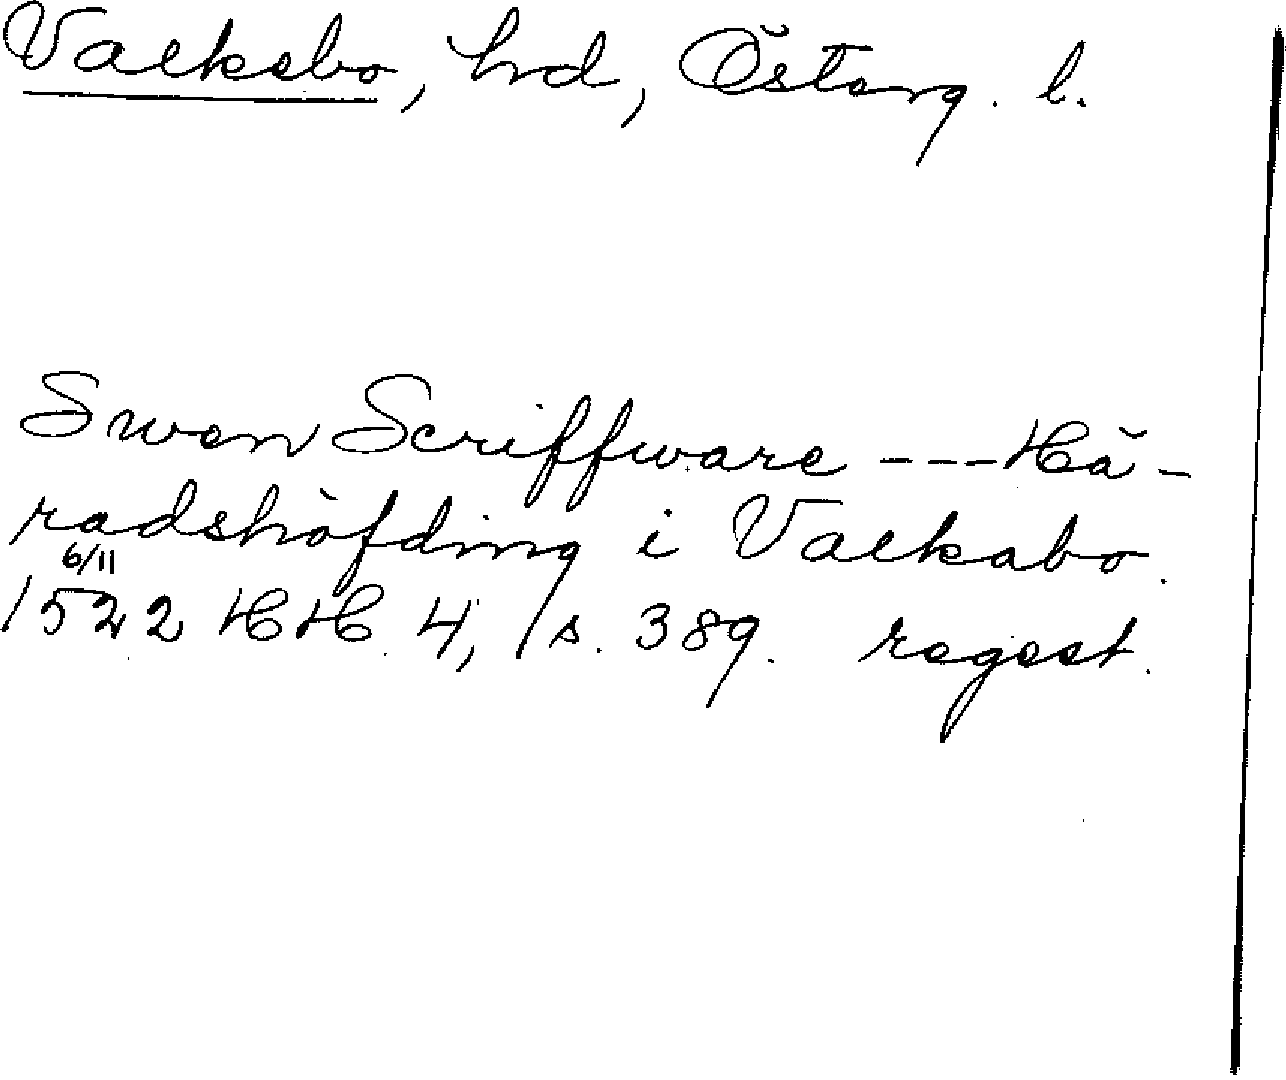 Valkebo, hd, Österg. l.
Swen Scriffware --- Hä-
radshöfding i Valkabo.
6/11
1522 HH. 4, s. 389. regest.